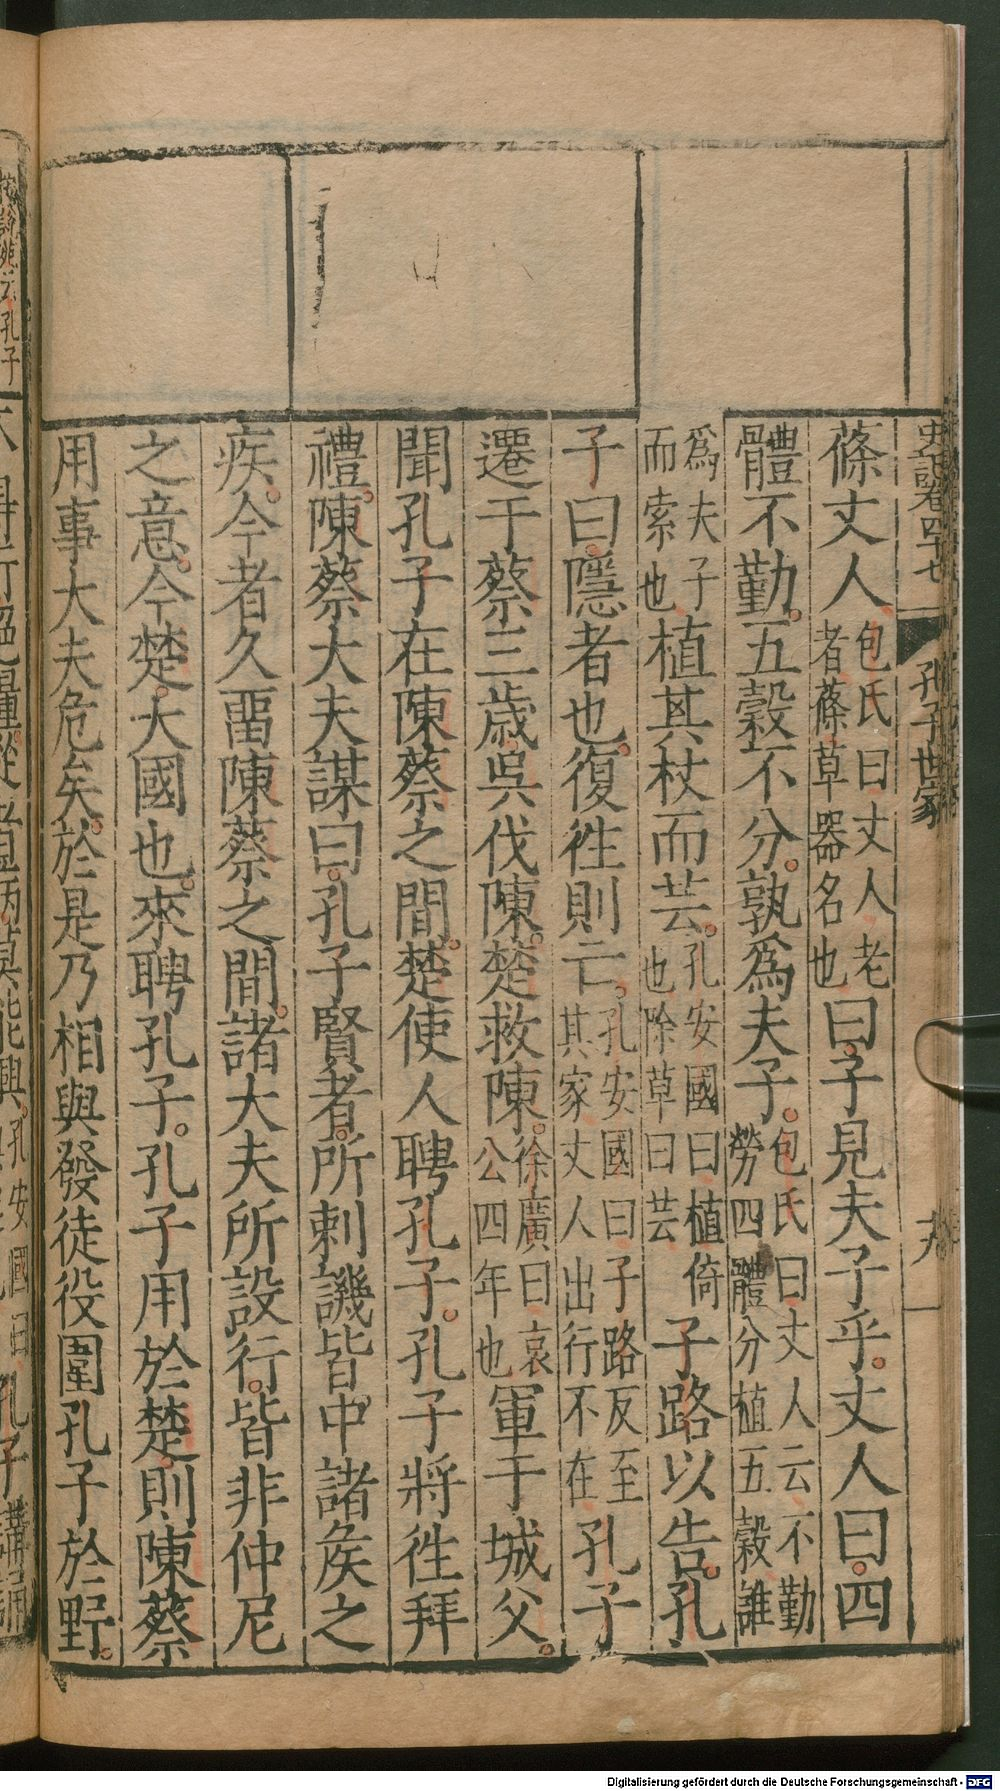 史記卷四十七 孔子世家 十九
蓧丈人包氏曰丈人老者蓧草器名也曰子見夫子乎丈人曰四
體不勤五穀不分孰爲夫子包氏曰丈人云不勤勞四體分植五穀誰
爲夫子而索也植其杖而芸孔安國曰植倚也除草曰芸子路以告孔
子曰隱者也復徃則亡孔安國曰子路反至其家丈人出行不在孔子
遷于蔡三歳吳伐陳楚救陳徐廣曰哀公四年也軍于城父
聞孔子在陳蔡之間楚使人聘孔子孔子將徃拜
禮陳蔡大夫謀曰孔子賢者所刺譏皆中諸矦之
疾今者久畱陳蔡之間諸大夫所設行皆非仲尼
之意今楚大國也來聘孔子孔子用於楚則陳蔡
用事大夫危矣於是乃相與發徒役圍孔子於野
Digitalisierung gefördert durch die Deutsche Forschungsgemeinschaft - DFG